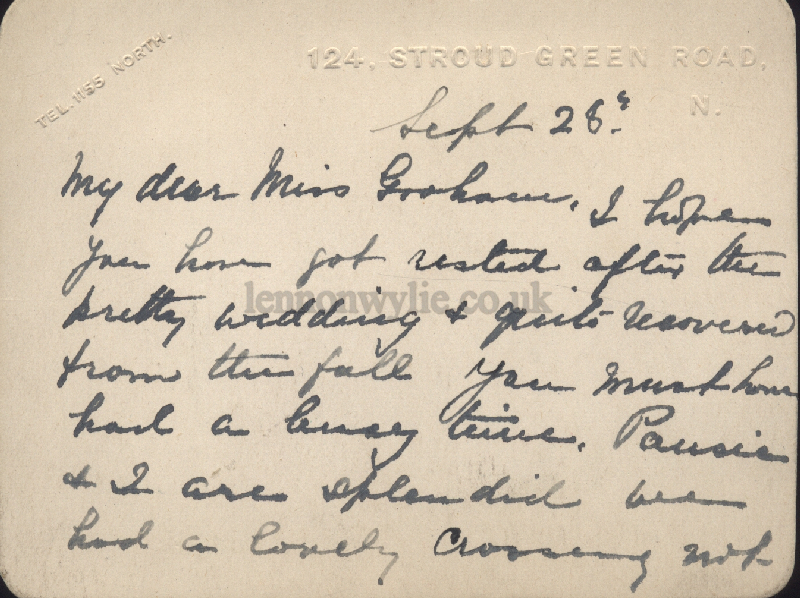 TEL. 1155 NORTH.
124, STROUD GREEN ROAD,
N.
Sept 28th
My dear Miss Graham, I hope
you have got rested after the
pretty wedding & quite recovered
from the fall you must have
had a busy time. Pansie
& I are splendid we
had a lovely crossing not
lennonwylie.co.uk